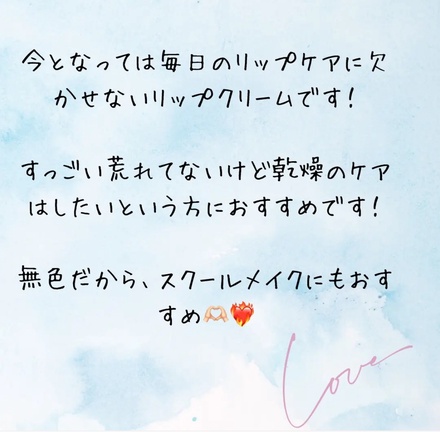 今となっては毎日のリップケアに欠
かせないリップクリームです!
すっごい荒れてないけど乾燥のケア
はしたいという方におすすめです!
無色だから、スクールメイクにもおす
すめ🫶🏻❤️‍🔥
Love